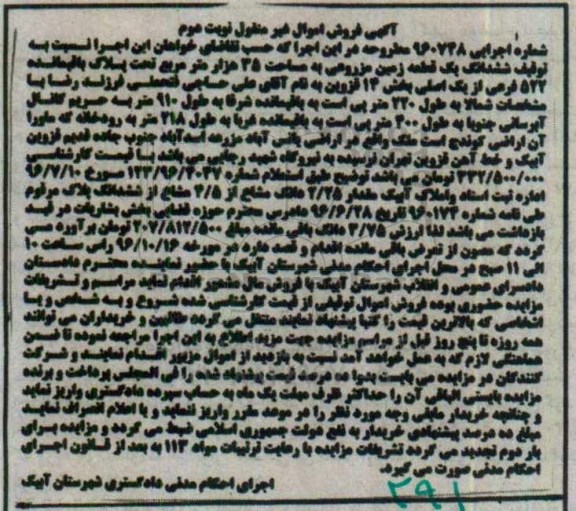 آگهی فروش اموال غیر منقول نوبت دوم
شماره اجرایی ۹۶۰۷۴۸ مطروحه در این اجرا که حسب تقاضای خواهان این اجرا نسبت به
توقیف ششدانگ یک قطعه زمین مزروعی به مساحت ۳۵ هزار متر مربع تحت پلاک باقیمانده
۵۲۲ فرعی از یک اصلی بخش ۱۳ قزوین به نام آقای علی حساجی فتحعلی فرزند رضا با
مشخصات شمالا به طول ۲۲۰ متر پی است به باقیمانده شرقا به طول ۹۱۰ متر به حریم کانال
آبرسانی جنوبا به طول ۳۰۰ متر پی است به باقیمانده غربا به طول ۲۱۸ متر به رودخانه که ماورا
آن اراضی کوندج است ملک واقع در اراضی پائین آباد مزرعه اسدآباد جنوب جاده قدیم قزوین
آبیک و خط آهن قزوین تهران نرسیده به نیروگاه شهید رجایی می باشد با قیمت کارشناسی
۳۳۲/۵۰۰/۰۰۰ تومان می باشد توضیح طبق استعلام شماره ۱۳۳/۹۶/۳۰۳۷ مورخ ۹۶/۷/۱۰
اداره ثبت اسناد واملاک آبیک مقدار ۲/۲۵ دانگ مشاع از ۴/۵ مشاع از ششدانگ پلاک مرقوم
طی نامه شماره ۹۶۰۱۷۳ تاریخ ۹۶/۶/۲۸ دادرس محترم حوزه قضایی بخش بشاریات در قید
بازداشت می باشد لذا ارزش ۳/۷۵ دانگ باقی مانده مبلغ ۲۰۷/۸۱۲/۵۰۰ تومان برآورده می
گردد که مصون از تعرض باقی مانده اقدام و قصد دارد در مورخه ۹۶/۱۰/۱۶ راس ساعت ۱۰
الی ۱۱ صبح در محل اجرای احکام مدنی شهرستان آبیک با حضور نماینده محترم دادستان
دادسرای عمومی و انقلاب شهرستان آبیک با فروش مال مذکور اقدام نماید مراسم و تشریفات
مزایده حضوری بوده فروش اموال توقیفی از قیمت کارشناسی شده شروع و به شخص و یا
اشخاصی که بالاترین قیمت را کتبا پیشنهاد نمایند منتقل می گردد طالبین و خریداران می توانند
همه روزه تا پنج روز قبل از مراسم مزایده جهت مزید اطلاع به این اجرا مراجعه نموده تا ضمن
هماهنگی لازم که به عمل خواهد آمد نسبت به بازدید از اموال مزبور اقدام نمایند و شرکت
کنندگان در مزایده می بایست بدوا ده درصد قیمت پیشنهاد شده را فی المجلس پرداخت و برنده
مزایده بایستی الباقی آن را حداکثر ظرف مهلت یک ماه به حساب سپرده دادگستری واریز نماید
و چنانچه خریدار مابقی وجه مورد نظر را در موعد مقرر واریز ننماید و یا اعلام انصراف نماید
مبلغ ده درصد پیشنهادی خریدار به نفع دولت جمهوری اسلامی ضبط می گردد و مزایده برای
بار دوم تجدید می گردد تشریفات مزایده با رعایت ترتیبات مواد ۱۱۳ به بعد از قانون اجرای
احکام مدنی صورت می گیرد.
اجرای احکام مدنی دادگستری شهرستان آبیک
۲۹۱